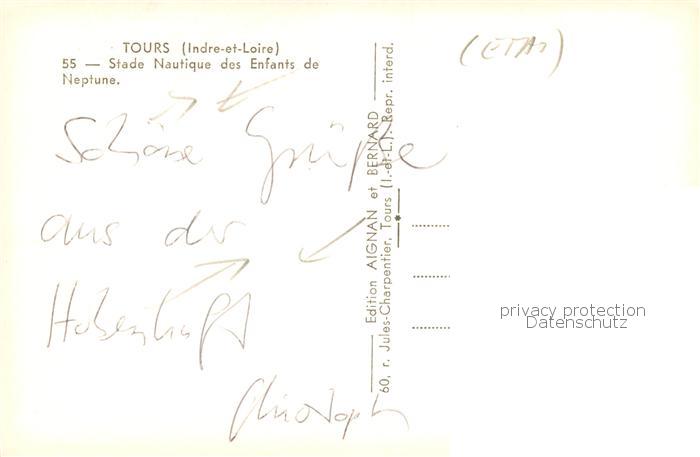 TOURS (Indre-et-Loire)
55 — Stade Nautique des Enfants de
Neptune.
Schöne Grüße
aus der
Christoph
Edition AIGNAN et BERNARD
60, r. Jules-Charpentier, Tours (I.-et-L.). Repr. interd.
privacy protection
Datenschutz